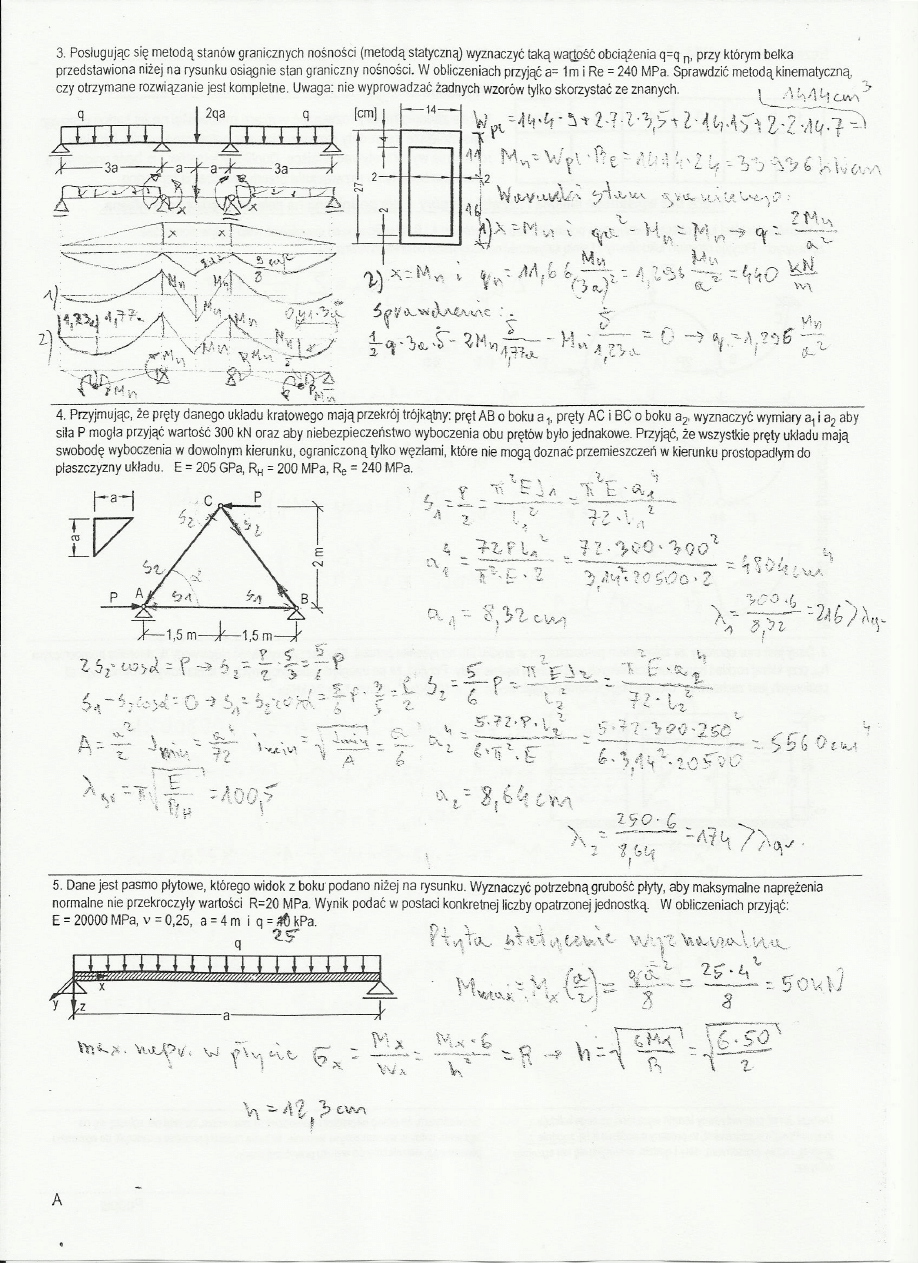 3. Posługując się metodą stanów granicznych nośności (metodą statyczną) wyznaczyć taką wartość obciążenia q=q n, przy którym belka
przedstawiona niżej na rysunku osiągnie stan graniczny nośności. W obliczeniach przyjąć a= 1m i Re = 240 MPa. Sprawdzić metodą kinematyczną,
czy otrzymane rozwiązanie jest kompletne. Uwaga: nie wyprowadzać żadnych wzorów tylko skorzystać ze znanych.
1414cm³
q 2qa q [cm] 14
Wpl = 14·4·9+2·7·2·3,5+2·14·15+2·2·14·7 =
3a a a 3a
27 2 2 2 14 16
Mn = Wpl·Re = 1414·24 = 33936 kNcm
Warunki stanu granicznego:
x x x
1) x = Mn i qa² - Mn = Mn → q = 2Mn/a²
2) x = Mn i qn = 11,66 Mn/(3a)² = 1,296 Mn/a² = 440 kN/m
1) Mn Mn Mn
1,23a 1,77a 0,41·3a
2) Mn Mn
Sprawdzenie:
1/2 q·3a·δ - 2Mn δ/1,77a - Mn δ/1,23a = 0 → q = 1,296 Mn/a²
Mn Mn Mn
4. Przyjmując, że pręty danego układu kratowego mają przekrój trójkątny: pręt AB o boku a 1, pręty AC i BC o boku a2, wyznaczyć wymiary a1 i a2 aby
siła P mogła przyjąć wartość 300 kN oraz aby niebezpieczeństwo wyboczenia obu prętów było jednakowe. Przyjąć, że wszystkie pręty układu mają
swobodę wyboczenia w dowolnym kierunku, ograniczoną tylko węzłami, które nie mogą doznać przemieszczeń w kierunku prostopadłym do
płaszczyzny układu. E = 205 GPa, RH = 200 MPa, Re = 240 MPa.
a a
C P
S2 S2
2 m
S2 α
P A S1 S1 B
1,5 m 1,5 m
S1 = P/2 = π²EJ1/l1² = π²E·a1⁴/72·l1²
a1⁴ = 72Pl1²/π²·E·2 = 72·300·300²/3,14²·20500·2 = 4804cm⁴
a1 = 8,32cm
λ1 = 300·6/8,32 = 216 > λgr
2S2·cosα = P → S2 = P/2 · 5/3 = 5/6 P
S1 - S2cosα = 0 → S1 = S2·cosα = 5/6 P · 3/5 = P/2
S2 = 5/6 P = π²EJ2/l2² = π²E·a2⁴/72·l2²
A = a²/2 Jmin = a⁴/72 imin = √Jmin/A = a/6
a2⁴ = 5·72·P·l2²/6·π²·E = 5·72·300·250²/6·3,14²·20500 = 5560cm⁴
λgr = π√E/RH = 100,5
a2 = 8,64cm
λ2 = 250·6/8,64 = 174 > λgr.
5. Dane jest pasmo płytowe, którego widok z boku podano niżej na rysunku. Wyznaczyć potrzebną grubość płyty, aby maksymalne naprężenia
normalne nie przekroczyły wartości R=20 MPa. Wynik podać w postaci konkretnej liczby opatrzonej jednostką. W obliczeniach przyjąć:
E = 20000 MPa, ν = 0,25, a = 4 m i q = kPa.
25
q
x
y z
a
Płyta statycznie wyznaczalna
Mmax = Mx(a/2) = qa²/8 = 25·4²/8 = 50kN
max. napr. w płycie σx = Mx/Wx = Mx·6/h² = R → h = √6Mx/R = √6·50/2
h = 12,3cm
A